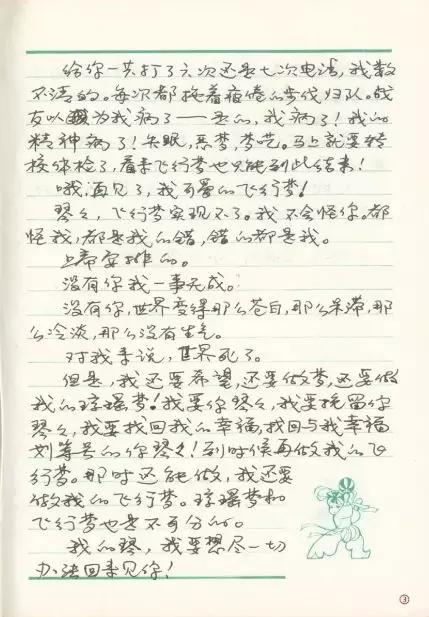 给你一共打了六次还是七次电话，我数
不清的。每次都拖着疲倦的步伐归队。战
友以为我病了——是的，我病了！我的
精神病了！失眠，恶梦，梦呓。马上就要转
校体检了，看来飞行梦也只能到此结束！
哦，再见了，我可爱的飞行梦！
琴琴，飞行梦实现不了。我不会怪你。都
怪我，都是我的错，错的都是我。
上帝安排的。
没有你我一事无成。
没有你，世界变得那么苍白，那么呆滞，那
么冷淡，那么没有生气。
对我来说，世界死了。
但是，我还要希望，还要做梦，还要做
我的琼瑶梦！我要你琴琴，我要挽留你
琴琴，我要找回我的幸福，找回与我幸福
划等号的你琴琴！到时候再做我的飞
行梦。那时还能做，我还要
做我的飞行梦。琼瑶梦和
飞行梦也是不可分的。
我的琴，我要想尽一切
办法回来见你！
③